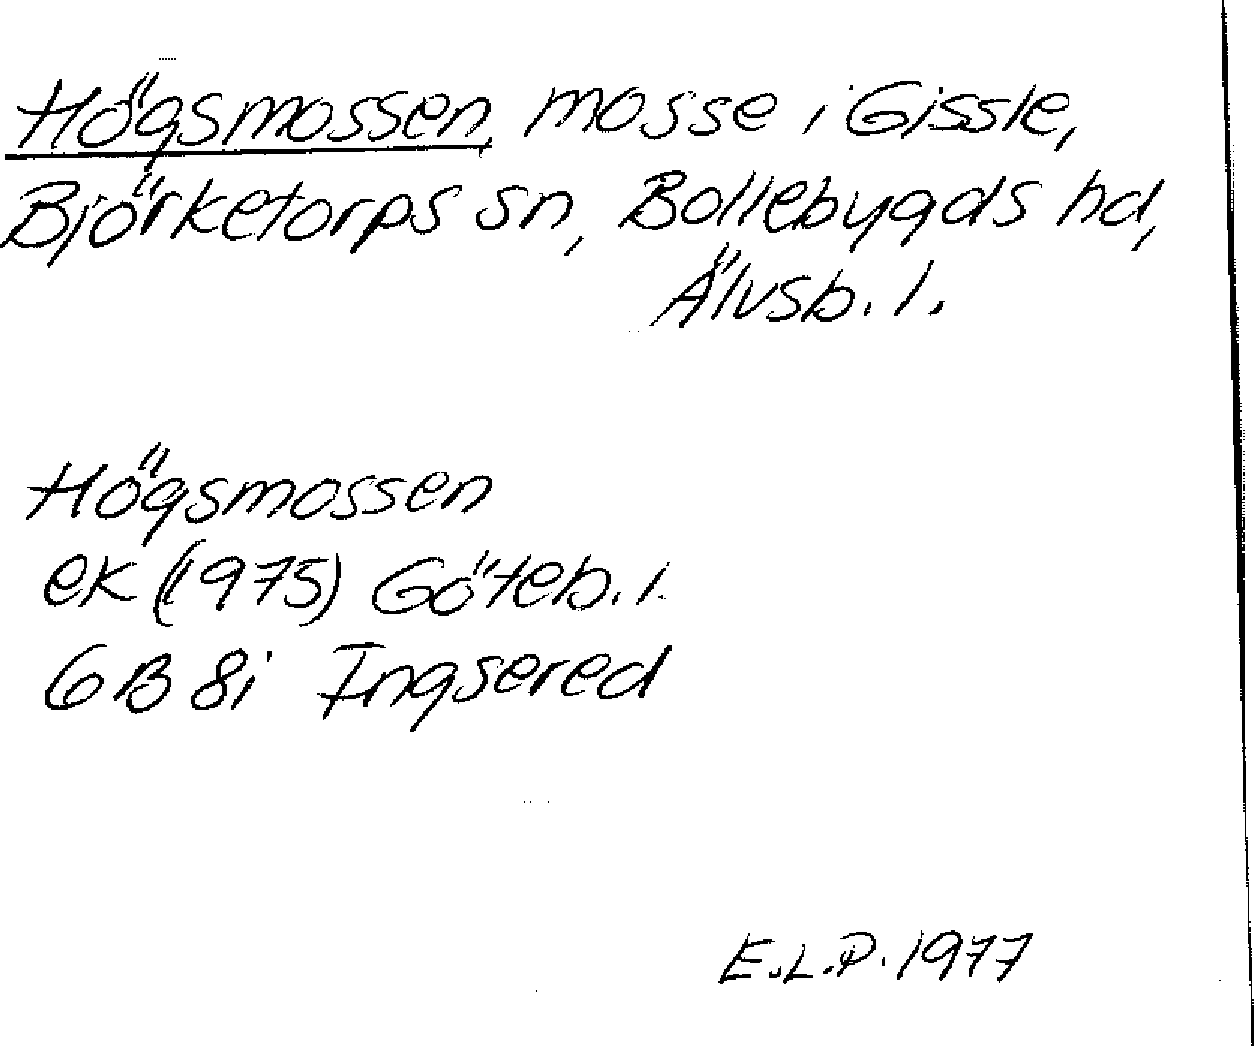 Högsmossen, mosse i Gissle,
Björketorps sn, Bollebygds hd,
Älvsb. l.
Högsmossen
ek (1975) Göteb. l.
6B 8i Ingsered
E.L.P. 1977